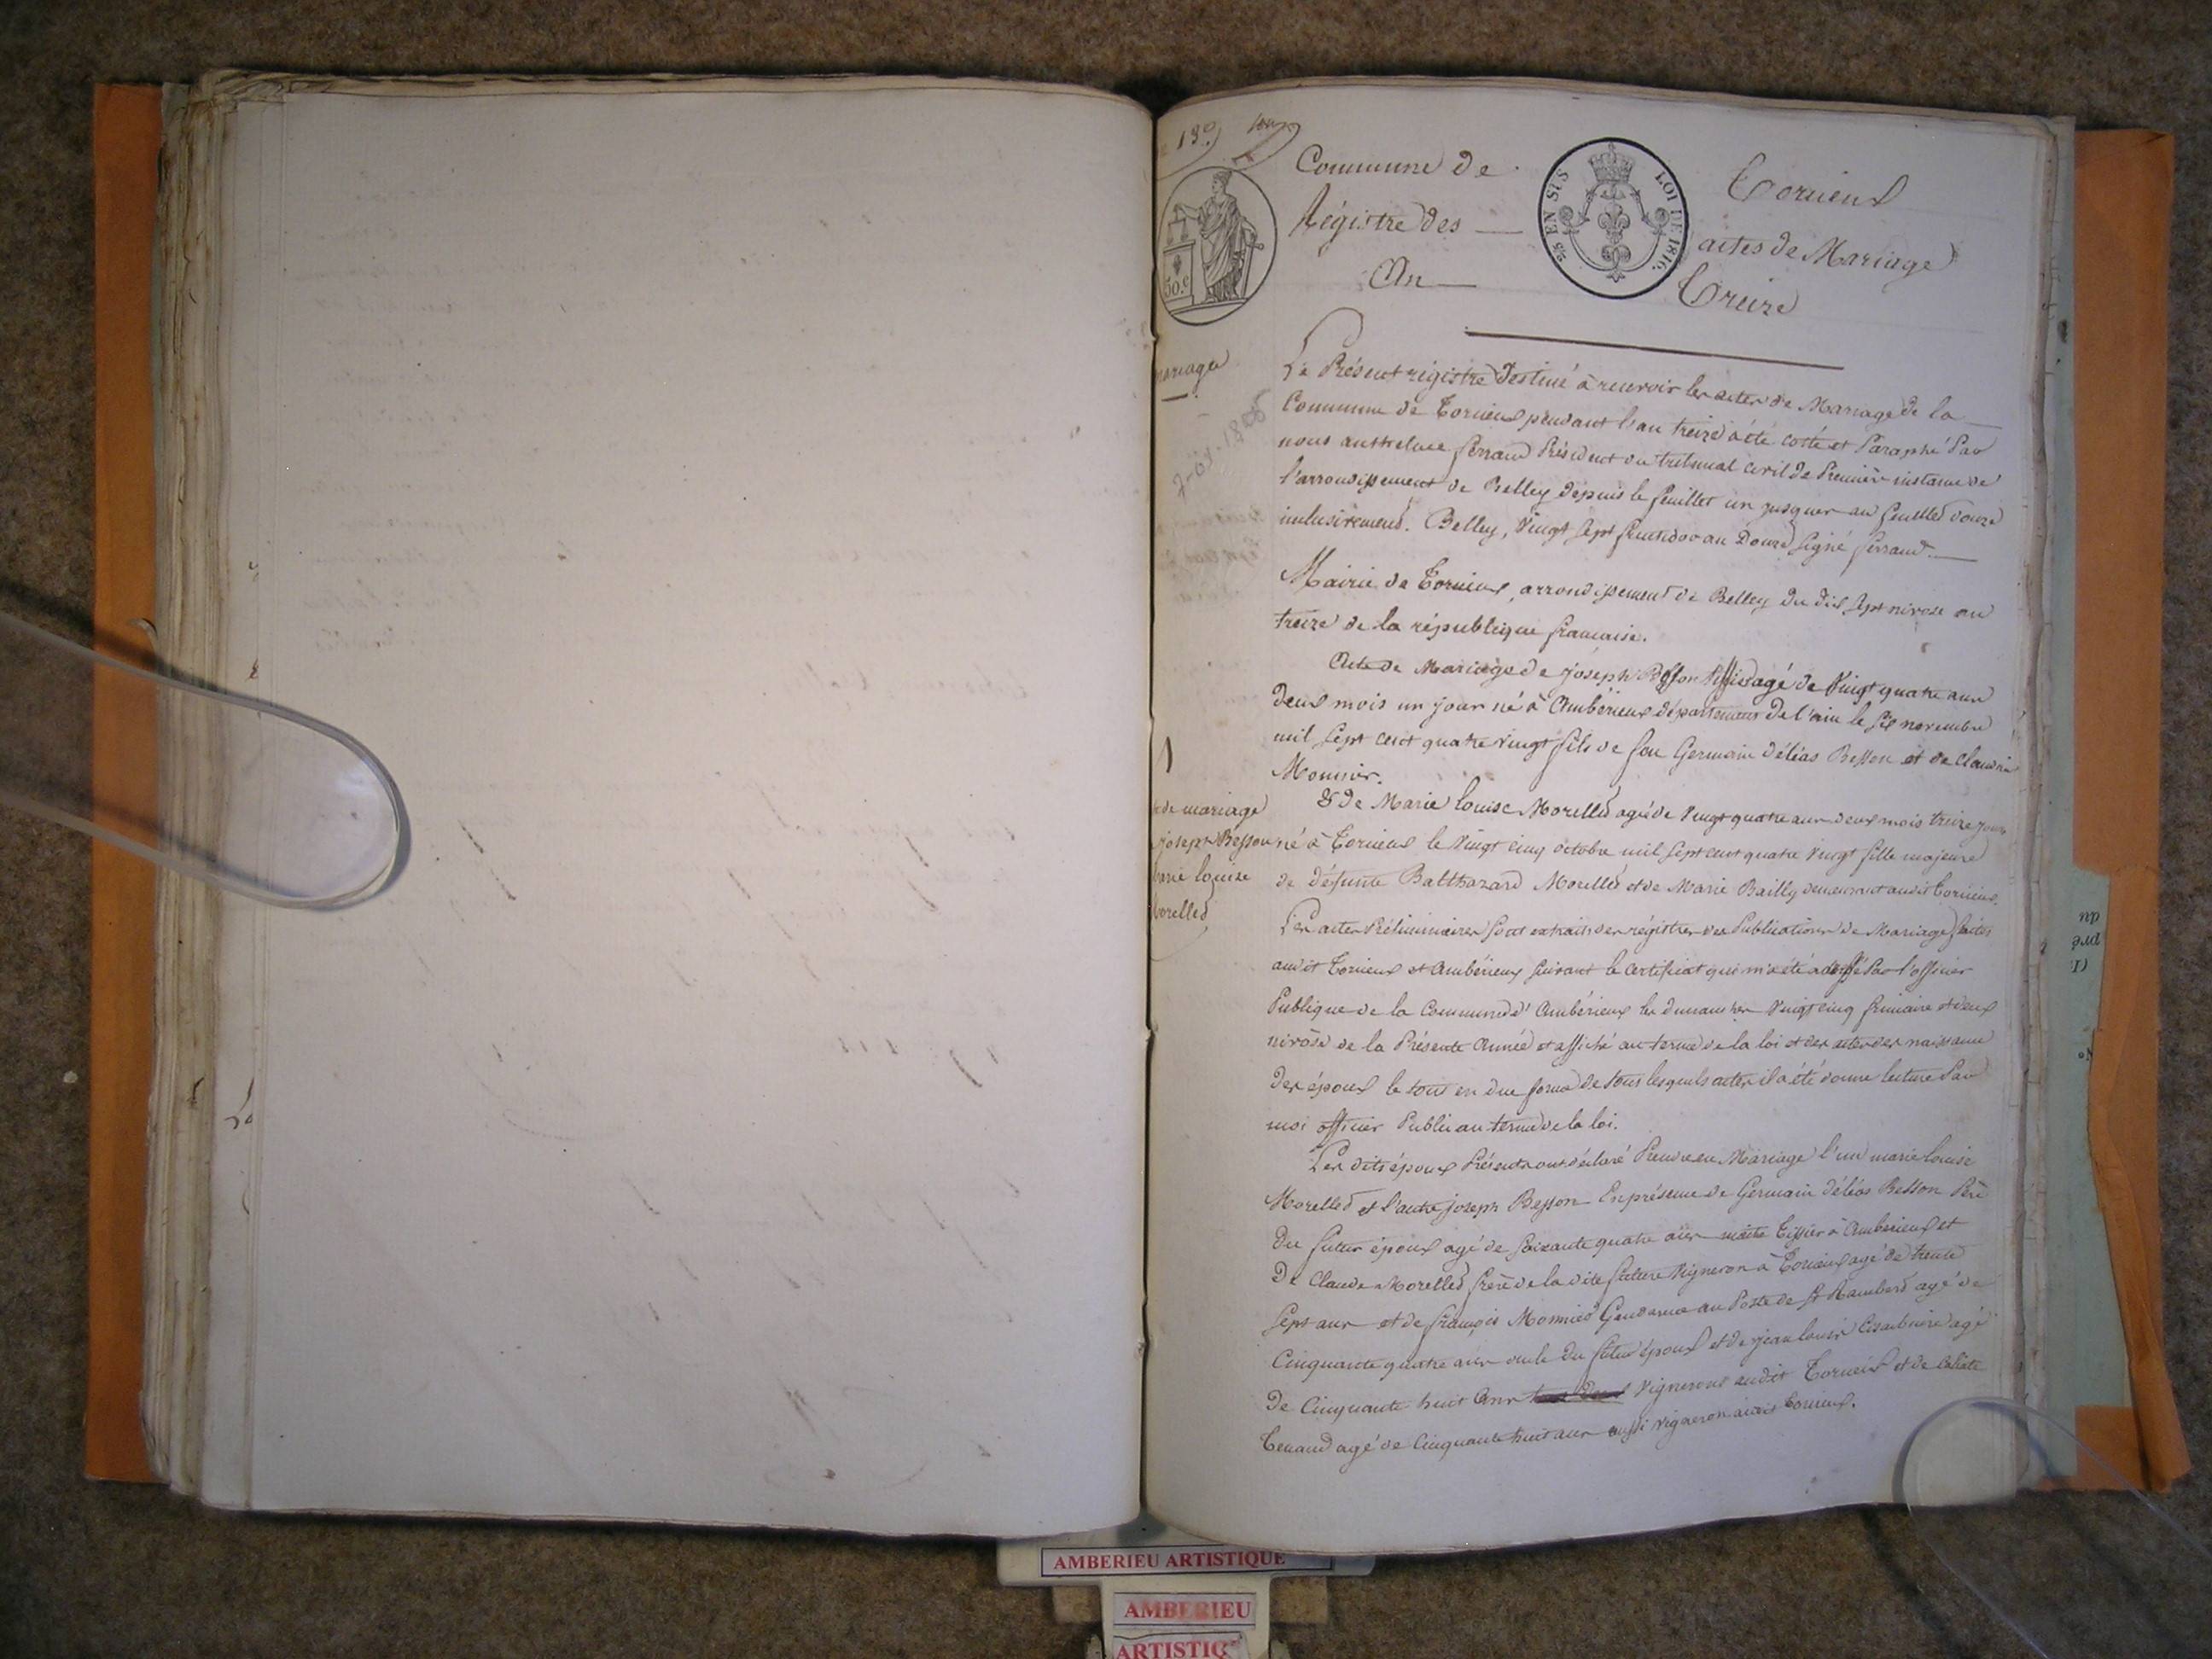 Commune de Torcieux
25 EN SUS
LOI DE 1816.
50.c
Régistre des actes de Mariage
An Treize
mariage
Le Présent régistre Destiné à recevoir les actes de Mariage de la
Commune de Torcieux pendant l'an treize a été cotté et Paraphé Par
nous anthelme ferrand Président du tribunal civil de Première instance de
l'arrondissement de Belley depuis le feuillet un jusques au feuillet douze
inclusivement. Belley, Vingt sept fructidor an Douze signé ferrand.
Mairie de Torcieux, arrondissement de Belley du dix sept nivose an
treize de la république francaise.
Acte de Mariage de joseph Besson agé de Vingt quatre ans
deux mois un jour né à Ambérieux département de l'ain le six novembre
mil sept cent quatre vingt fils de feu Germain déléas Besson et de Claudine
Monnier.
1
de mariage
joseph Besson
marie louise
morelled
& de Marie louise Morelled agé de Vingt quatre ans deux mois treize jours
né à Torcieux le Vingt cinq octobre mil sept cent quatre vingt fille majeure
de défunte Balthazard Morelled et de Marie Bailly demeurant audit Torcieux.
Les actes Préliminaires sont extraits des régistres des Publications de Mariage faites
audit Torcieux et Ambérieux suivant le certificat qui m'a été adressé Par l'officier
Publique de la Commune d'Ambérieux les dimanches Vingt cinq frimaire et deux
nivôse de la Présente Année et affiché au terme de la loi et des actes des naissance
des époux le tout en due forme de tous lesquels actes il a été donné lecture Par
moi officier Public au terme de la loi.
Les dits époux Présents ont déclaré Prendre en Mariage l'un marie louise
Morelled et l'autre joseph Besson En présence de Germain déléas Besson Père
du futur époux agé de soixante quatre ans maitre tissier à Amberieux et
De Claude Morelled frère de la dite future Vigneron à Torcieux agé de trente
sept ans et de françois Monnier Gendarme au Poste de St Rambert agé de
Cinquante quatre ans oncle du futur époux et de jean louis agé
de Cinquante huit Ans Vignerons audit Torcieux et de
Tenand agé de Cinquante huit ans aussi vigneron audit Torcieux.
AMBERIEU ARTISTIQUE
AMBERIEU
ARTISTIQ